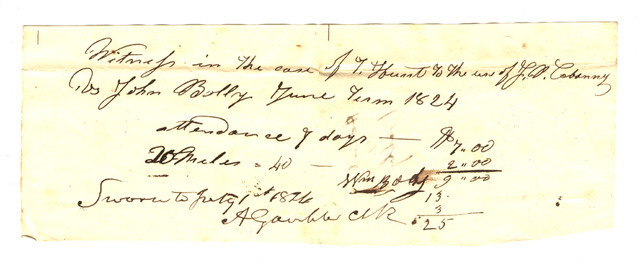 Witness in the case of T. Hunt to the use of J.P. Cabanny
Vs John Bolly June Term 1824
attendance 7 days — $7.00
20 Miles = 40 — 2.00
Wm 9.00
13
Sworn to July 1st 1824 3
A Gamble Clk 25